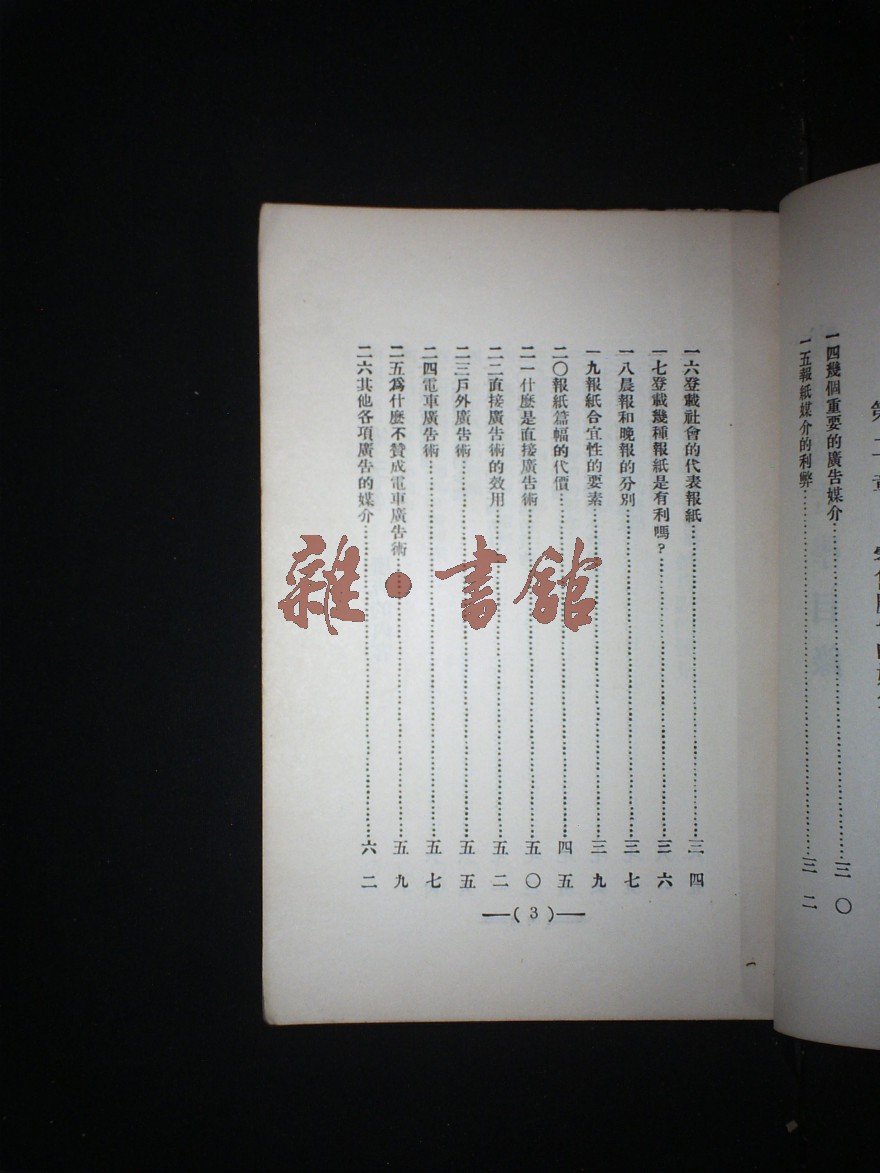 一四幾個重要的廣告媒介……三〇
一五報紙媒介的利弊……三二
一六登載社會的代表報紙……三四
一七登載幾種報紙是有利嗎？……三六
一八晨報和晚報的分別……三七
一九報紙合宜性的要素……三九
二〇報紙篇幅的代價……四五
二一什麼是直接廣告術……五〇
二二直接廣告術的效用……五二
二三戶外廣告術……五五
二四電車廣告術……五七
二五爲什麼不贊成電車廣告術……五九
二六其他各項廣告的媒介……六二
—(3)—
雜·書館